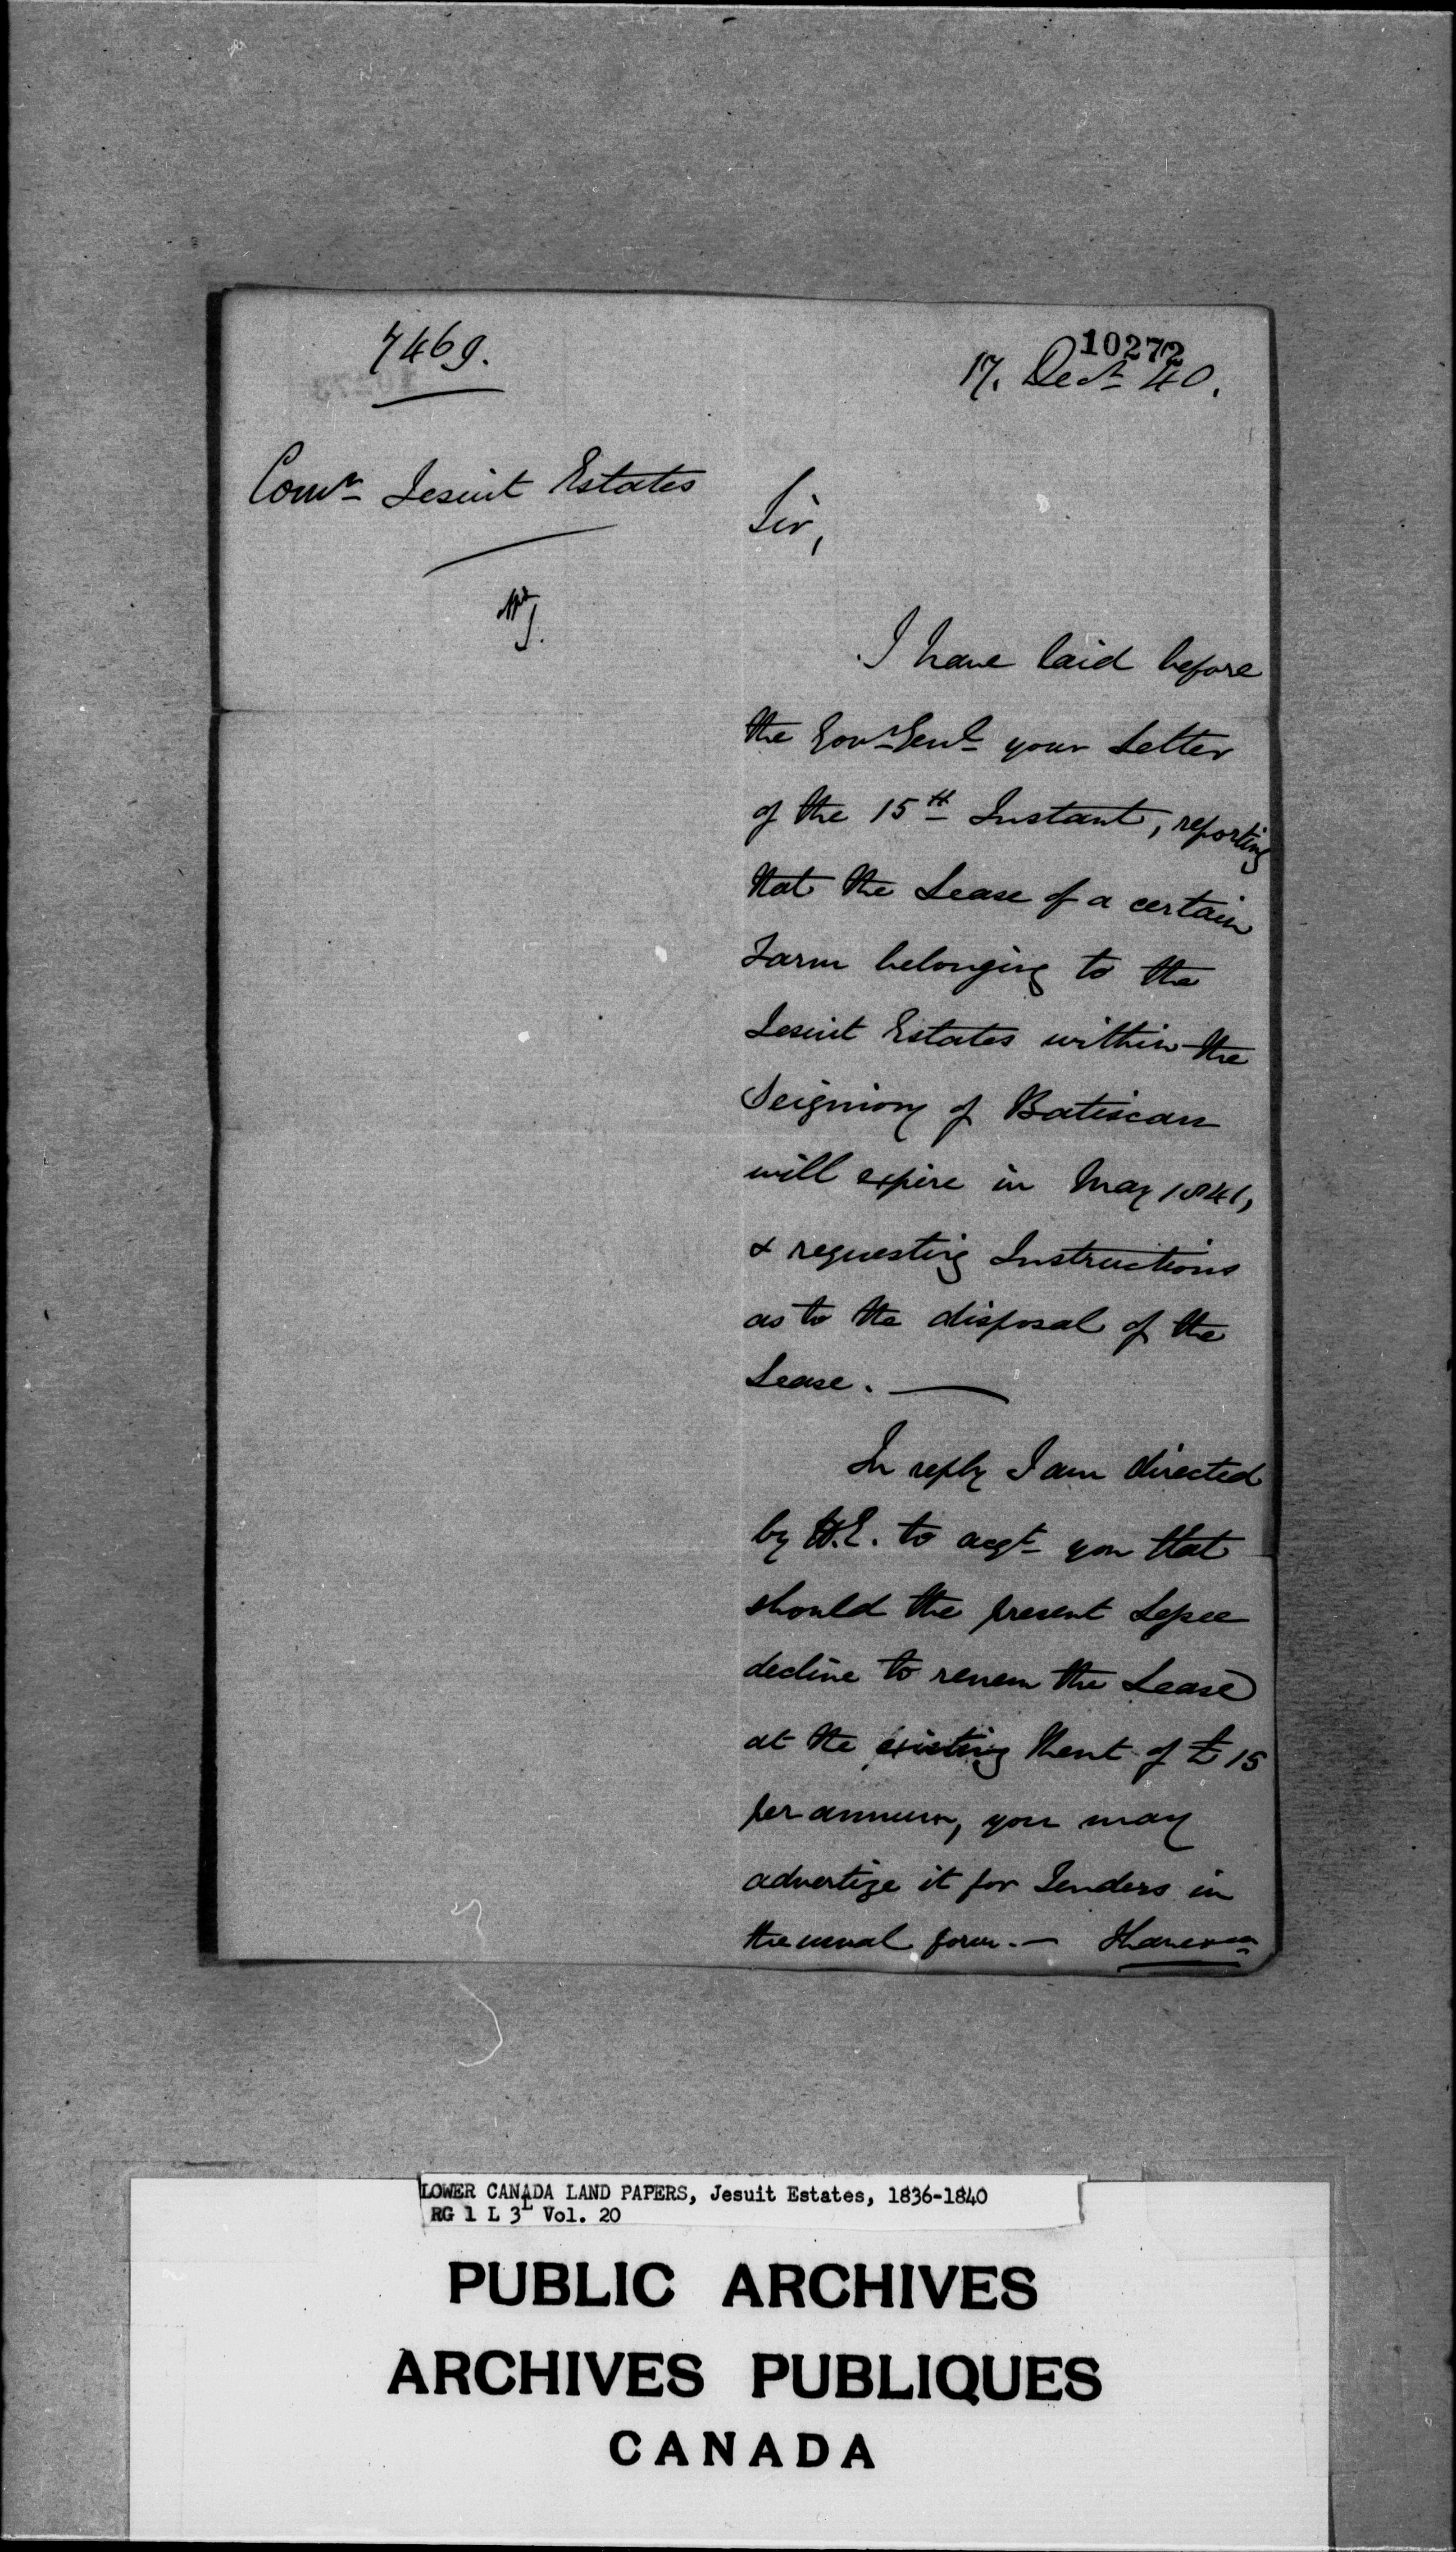 7469.
10272
17. Decr 40.
Comr Jesuit Estates
Sir,
I have laid before
the Govr Genl your Letter
of the 15th Instant, reporting
that the Lease of a certain
Farm belonging to the
Jesuit Estates within the
Seigniory of Batiscan
will expire in May 1841,
& requesting Instructions
as to the disposal of the
Lease. —
In reply I am directed
by H.E. to acqt you that
should the present Lessee
decline to renew the Lease
at the existing Rent of £15
per annum, you may
advertize it for Tenders in
the usual form. —
LOWER CANADA LAND PAPERS, Jesuit Estates, 1836-1840
RG 1 L 3L Vol. 20
PUBLIC ARCHIVES
ARCHIVES PUBLIQUES
CANADA